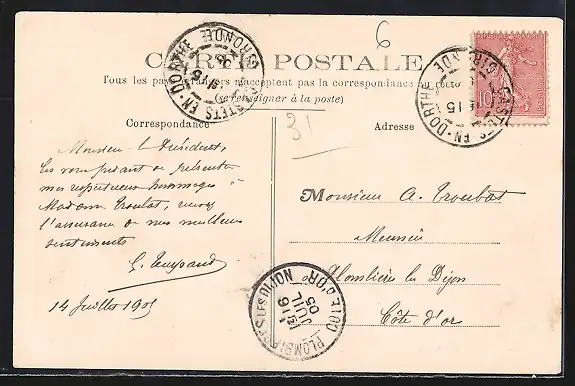 6
CARTE POSTALE
Tous les pays étrangers n'acceptent pas la correspondance au recto
(se renseigner à la poste)
CASTETS-EN-DORTHE
GIRONDE
CASTETS-EN-DORTHE
GIRONDE
15
10
31
Correspondance
Adresse
Monsieur le Président,
En vous priant de présenter
mes respectueux hommages à
Madame Troubat, recevez
l'assurance de mes meilleurs
sentiments
14 Juillet 1905
Monsieur A. Troubat
Meunier
Plombières les Dijon
Côte d'or
PLOMBIERES LES DIJON
CÔTE D'OR
16
JUIL
05